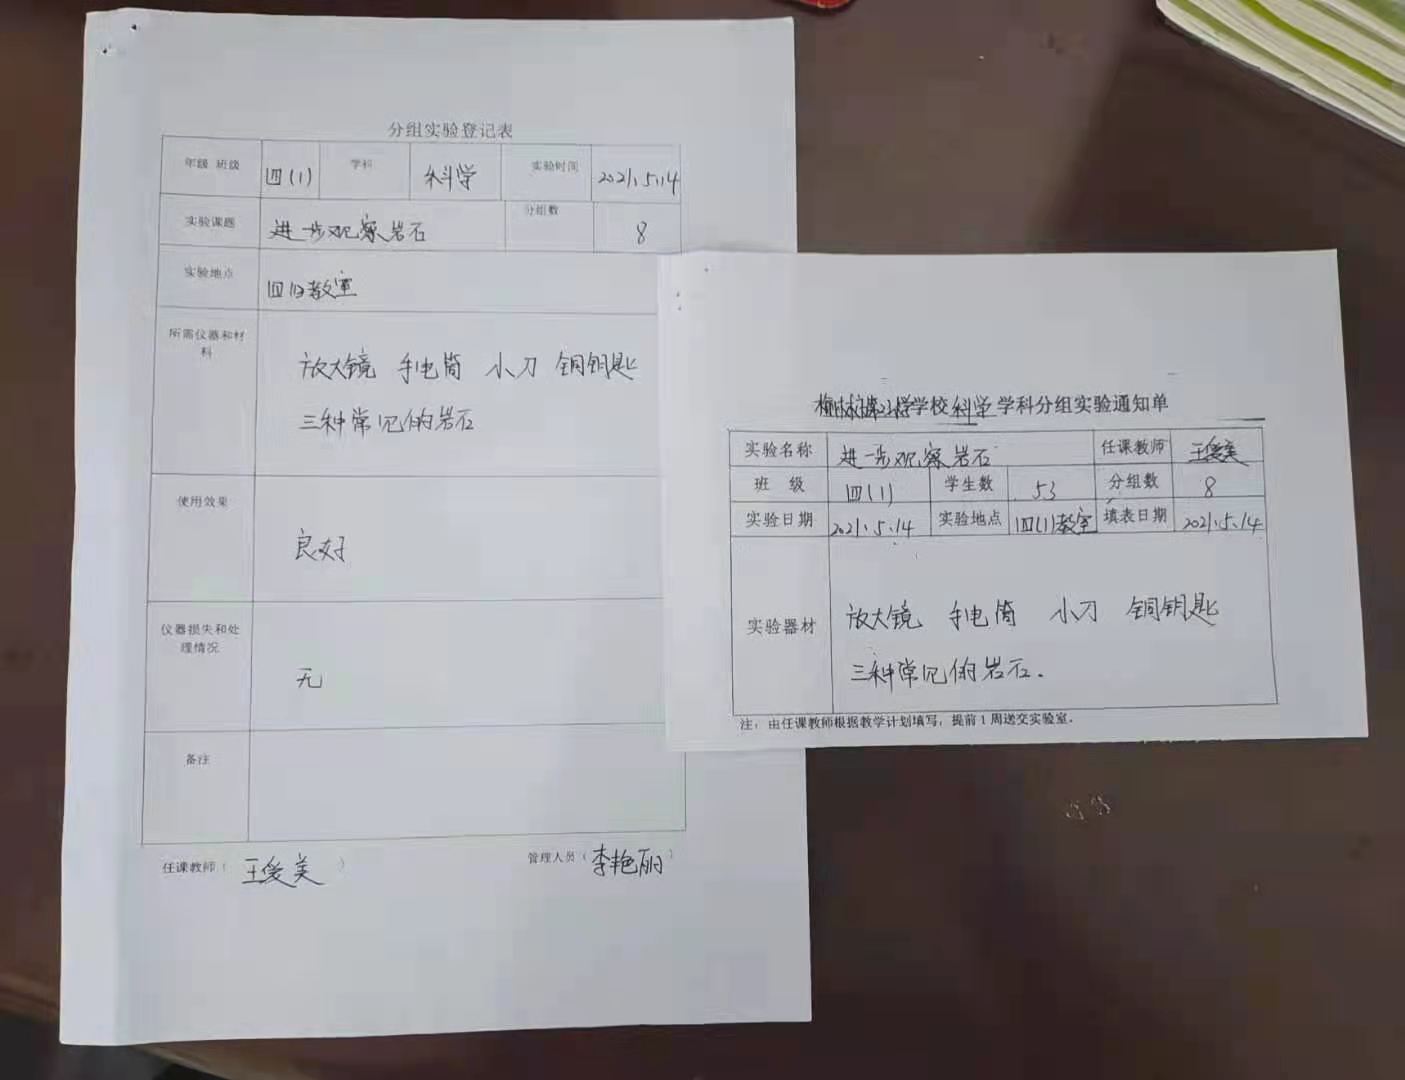 分组实验登记表
年级 班级 四(1) 学科 科学 实验时间 2021.5.14
实验课题 进一步观察岩石 分组数 8
实验地点 四(1)教室
所需仪器和材
料
放大镜 手电筒 小刀 铜钥匙
三种常见的岩石
使用效果
良好
仪器损失和处
理情况
无
备注
任课教师（王俊美） 管理人员（李艳丽）
学校科学学科分组实验通知单
实验名称 进一步观察岩石 任课教师 王俊美
班 级 四(1) 学生数 53 分组数 8
实验日期 2021.5.14 实验地点 四(1)教室 填表日期 2021.5.14
实验器材
放大镜 手电筒 小刀 铜钥匙
三种常见的岩石.
注：由任课教师根据教学计划填写，提前1周送交实验室.